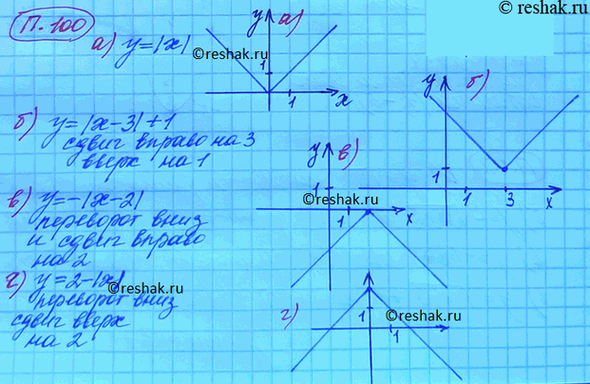 © reshak.ru
П. 100
а) y=|x|
а)
y
1
1
x
©reshak.ru
б) y=|x-3|+1
сдвиг вправо на 3
вверх на 1
y
б)
1
1
3
x
в) y=-|x-2|
переворот вниз
и сдвиг вправо
на 2
y
в)
1
1
x
©reshak.ru
г) y=2-|x|
переворот вниз
сдвиг вверх
на 2
©reshak.ru
г)
1
1
©reshak.ru